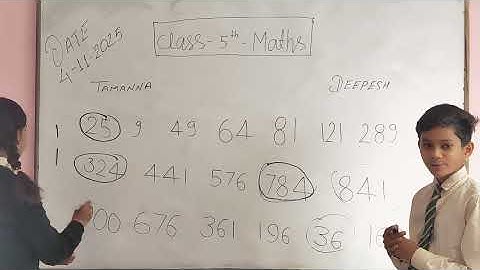 DATE
4-11-2025
Class-5th-Maths
TAMANNA
DEEPESH
25 9 49 64 81 121 289
324 441 576 784 841
00 676 361 196 36